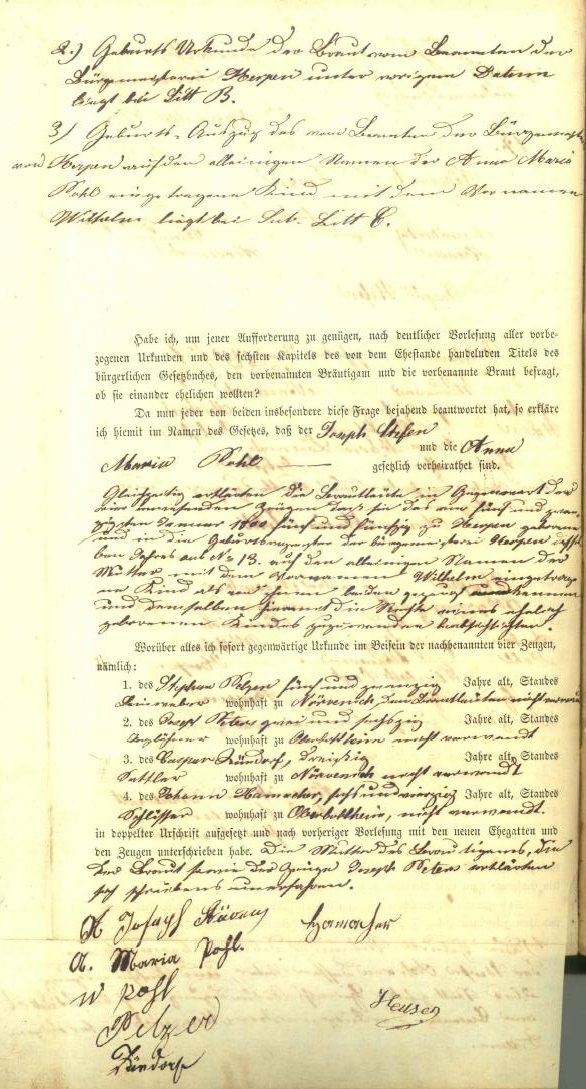 2.) Geburts Urkunde der Braut vom Beamten der
Bürgermeisterei Kerpen unter vorigem Datum
liegt bei Litt B.
3) Geburts-Auszug des vom Beamten der Bürgermeiste-
rei Kerpen auf den alleinigen Namen der Anna Maria
Pohl eingetragene Kind mit dem Vornamen
Wilhelm liegt bei sub. Litt C.
Habe ich, um jener Aufforderung zu genügen, nach deutlicher Vorlesung aller vorbe-
zogenen Urkunden und des sechsten Kapitels des von dem Ehestande handelnden Titels des
bürgerlichen Gesetzbuches, den vorbenannten Bräutigam und die vorbenannte Braut befragt,
ob sie einander ehelichen wollten?
Da nun jeder von beiden insbesondere diese Frage bejahend beantwortet hat, so erkläre
ich hiemit im Namen des Gesetzes, daß der Joseph
und die Anna
Maria Pohl gesetzlich verheirathet sind.
Gleichzeitig erklärten die Brautleute in Gegenwart der
vier Zeugen daß sie das am fünf und zwan-
zigsten Januar fünf und fünfzig zu Kerpen geborene
und in die Geburtsregister der Bürgermeisterei Kerpen dessel-
ben Jahres sub No 13. auf den alleinigen Namen der
Mutter mit dem Vornamen Wilhelm eingetrage-
ne Kind als von ihnen beiden gezeugt anerkennen
und demselben hiermit die Rechte eines ehelich
geborenen Kindes zuzuwenden beabsichtigten.
Worüber alles ich sofort gegenwärtige Urkunde im Beisein der nachbenannten vier Zeugen,
nämlich:
1. des Stephan Pelzer fünf und zwanzig Jahre alt, Standes
Leinweber wohnhaft zu Nörvenich den Brautleuten nicht verwandt
2. des Joseph Peters zwei und sechszig Jahre alt, Standes
Taglöhner wohnhaft zu Oberbolheim nicht verwandt
3. des Caspar Zündorf, dreißig Jahre alt, Standes
Sattler wohnhaft zu Nörvenich nicht verwandt
4. des Johann Hamacher, sechs und vierzig Jahre alt, Standes
Schlosser wohnhaft zu Oberbolheim, nicht verwandt.
in doppelter Urschrift aufgesetzt und nach vorheriger Vorlesung mit den neuen Ehegatten und
den Zeugen unterschrieben habe. Die Mutter des Bräutigams, die
der Braut sowie der Zeuge Joseph Peters erklärten
sich schreibens unerfahren.
Joseph Hamacher
A. Maria Pohl.
W Pohl
Pelzer
Zündorf